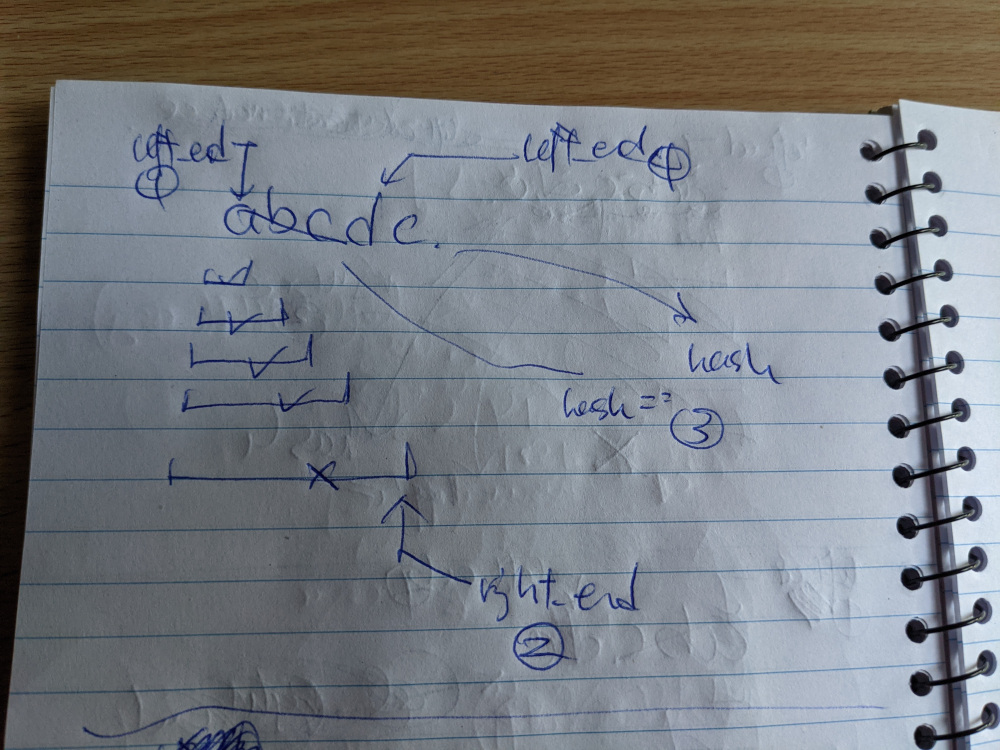 left_ed left_ed ④
①
abcdc.
hash
hash == ③
right_end
②